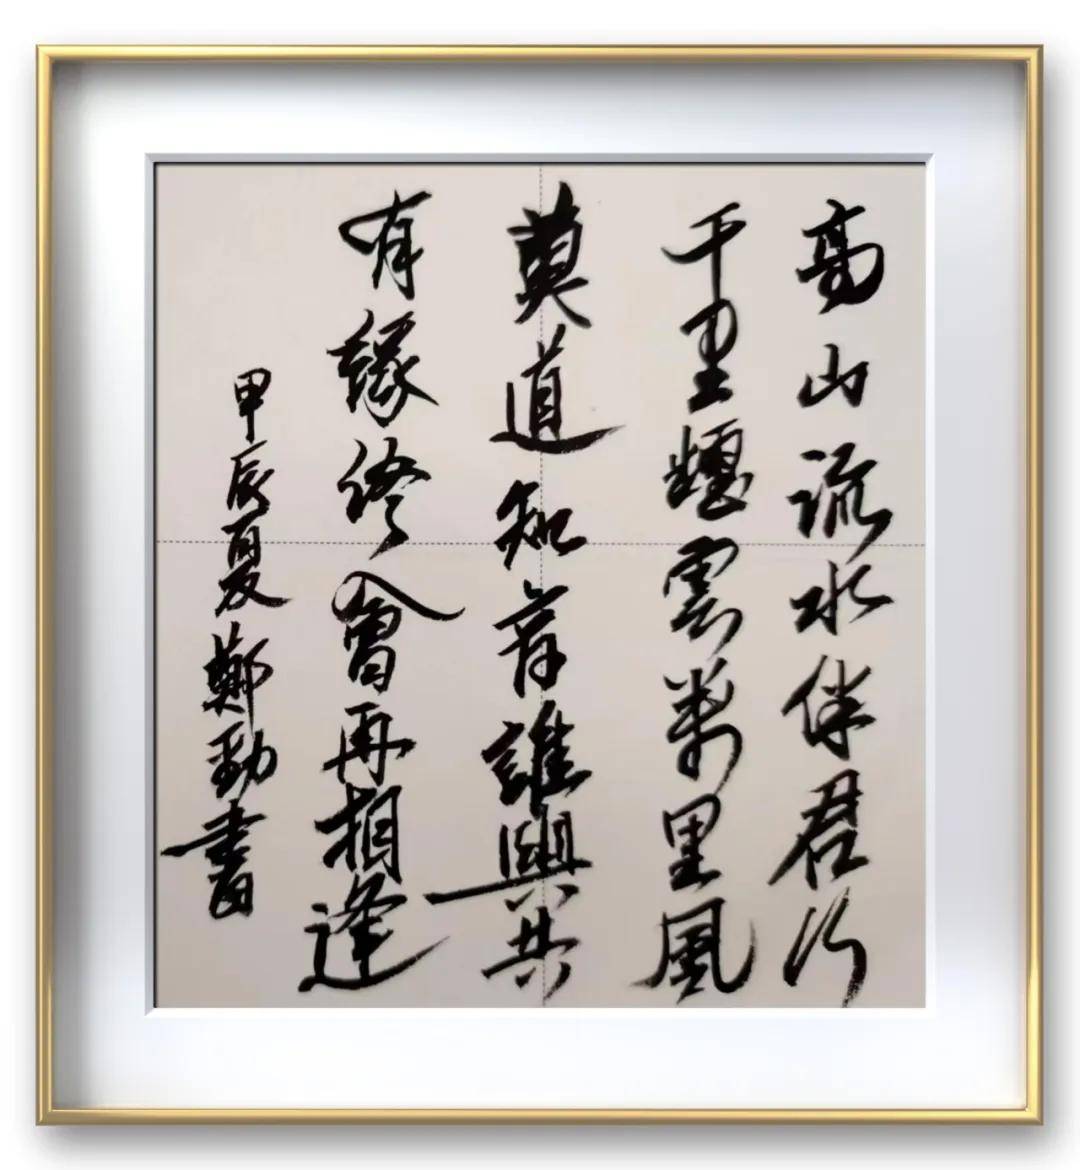 高山流水伴君行
千里煙雲萬里風
莫道知音誰與共
有緣終會再相逢
甲辰夏鄭勁書